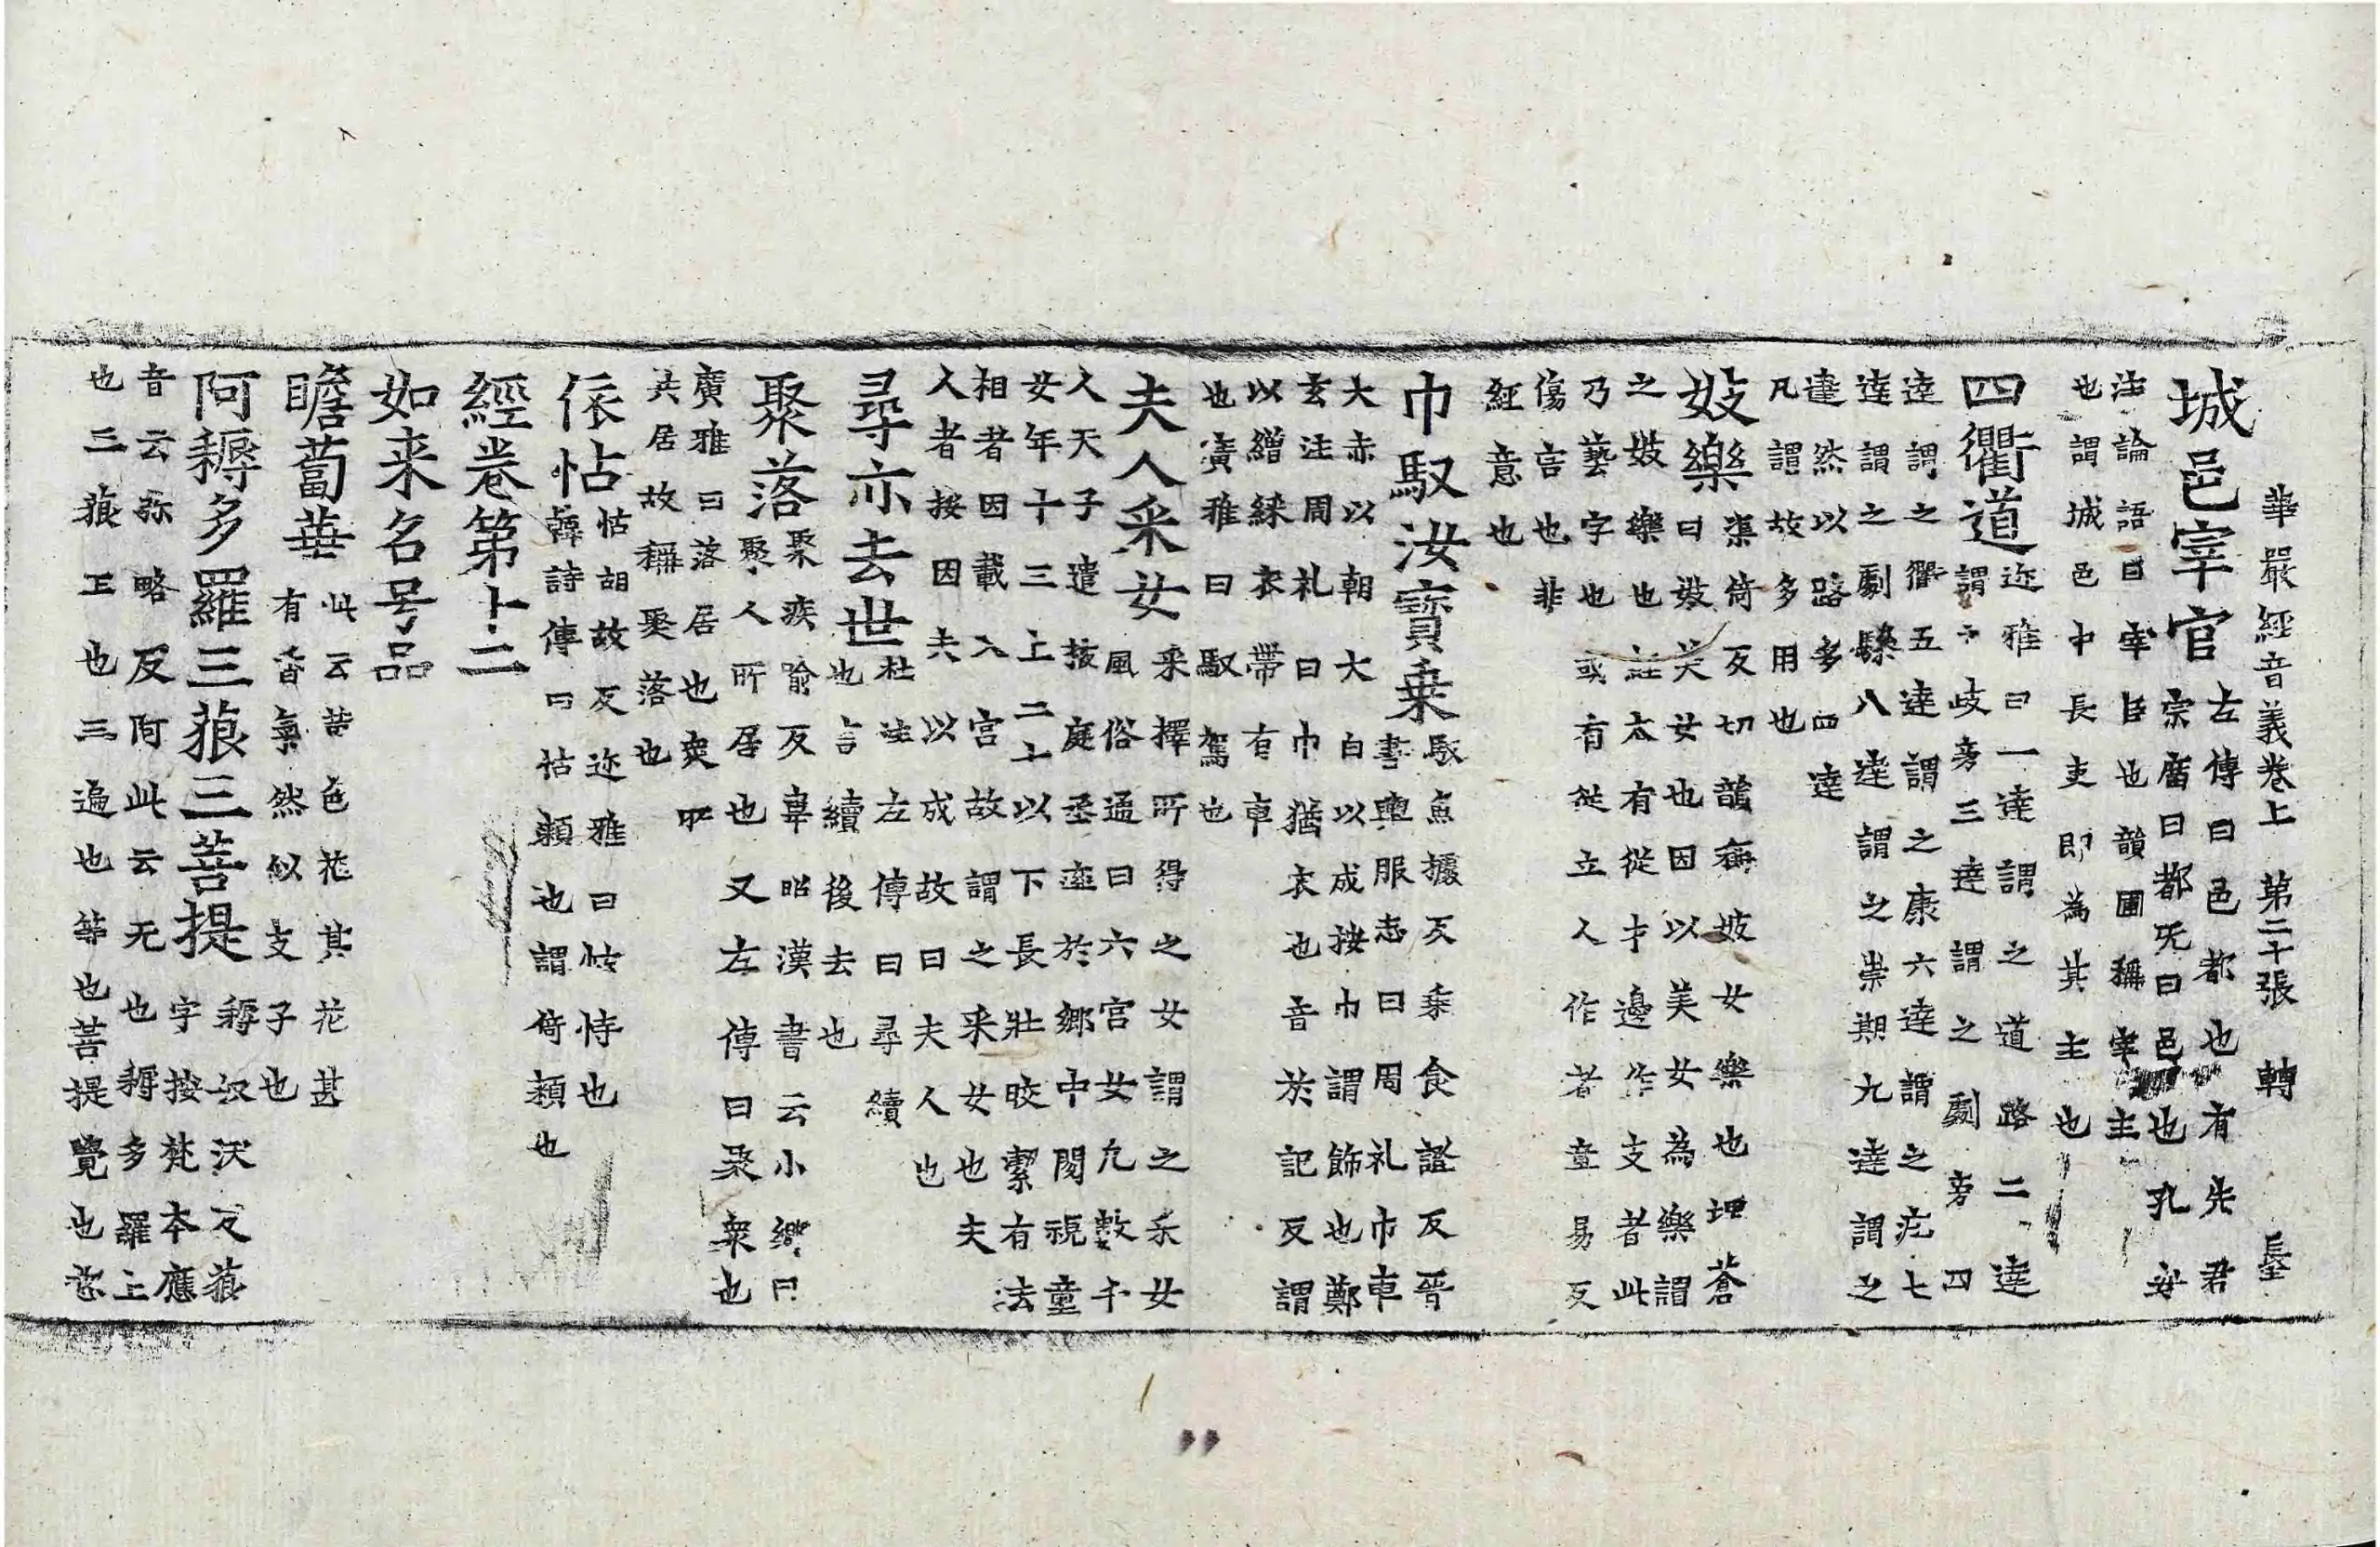 華嚴經音義卷上 第二十張 轉
城邑宰官 左傳曰邑都也有先君
宗庿曰都旡曰邑也孔安
注論語曰宰臣也韻圃稱宰主
也謂城邑中長吏即為其主也
四衢道 迩雅曰一達謂之道路二達
謂之歧旁三達謂之劇旁四
達謂之衢五達謂之康六達謂之庄七
達謂之劇驂八達謂之崇期九達謂之
逵然以路多四達
凡謂故多用也
妓樂 渠倚反切韻稱妓女樂也埤蒼
曰妓美女也因以美女為樂謂
之妓樂也註太有從扌邊作支者此
乃藝字也或有從立人作者章易反
傷害也非
經意也
巾馭汝寶乗 馭魚據反乘食證反晉
書輿服志曰周礼巾車
大赤以朝大白以成按巾謂飾也鄭
玄注周礼曰巾猶衣也音於記反謂
以繒綵衣帶有車
也廣雅曰馭駕也
夫人采女 采擇所得之女謂之采女
風俗通曰六宮女凢數千
人天子遣掖庭丞巡於鄉中閱視童
女年十三上二十以下長壯皎絜有法
相者因載入宮故謂之采女也夫
人者按因夫以成故曰夫人也
尋亦去世 杜注左傳曰尋續
也言續後去也
聚落 聚疾喻反韋昭漢書云小鄉曰
聚人所居也又左傳曰聚衆也
廣雅曰落居也衆所
共居故稱聚落也
依怙 怙胡故反迩雅曰怙恃也
韓詩傳曰怙賴也謂倚賴也
經卷第十二
如来名号品
瞻蔔華 此云黃色花其花甚
有香氣然似支子也
阿耨多羅三藐三菩提 耨奴沃反藐
字按梵本應
音云弥略反阿此云无也耨多羅上
也三藐正也三遍也等也菩提覺也惣